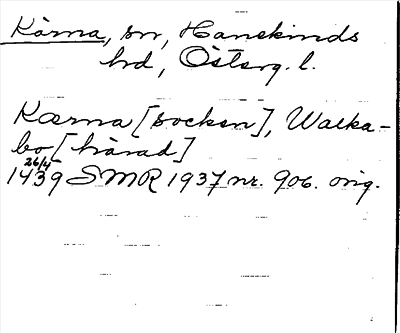 Kärna, sn, Hanekinds
hd, Österg. l.
Kærna [socken], Walka-
bo [härad]
26/4
1439 SMR 1937 nr. 906. orig.